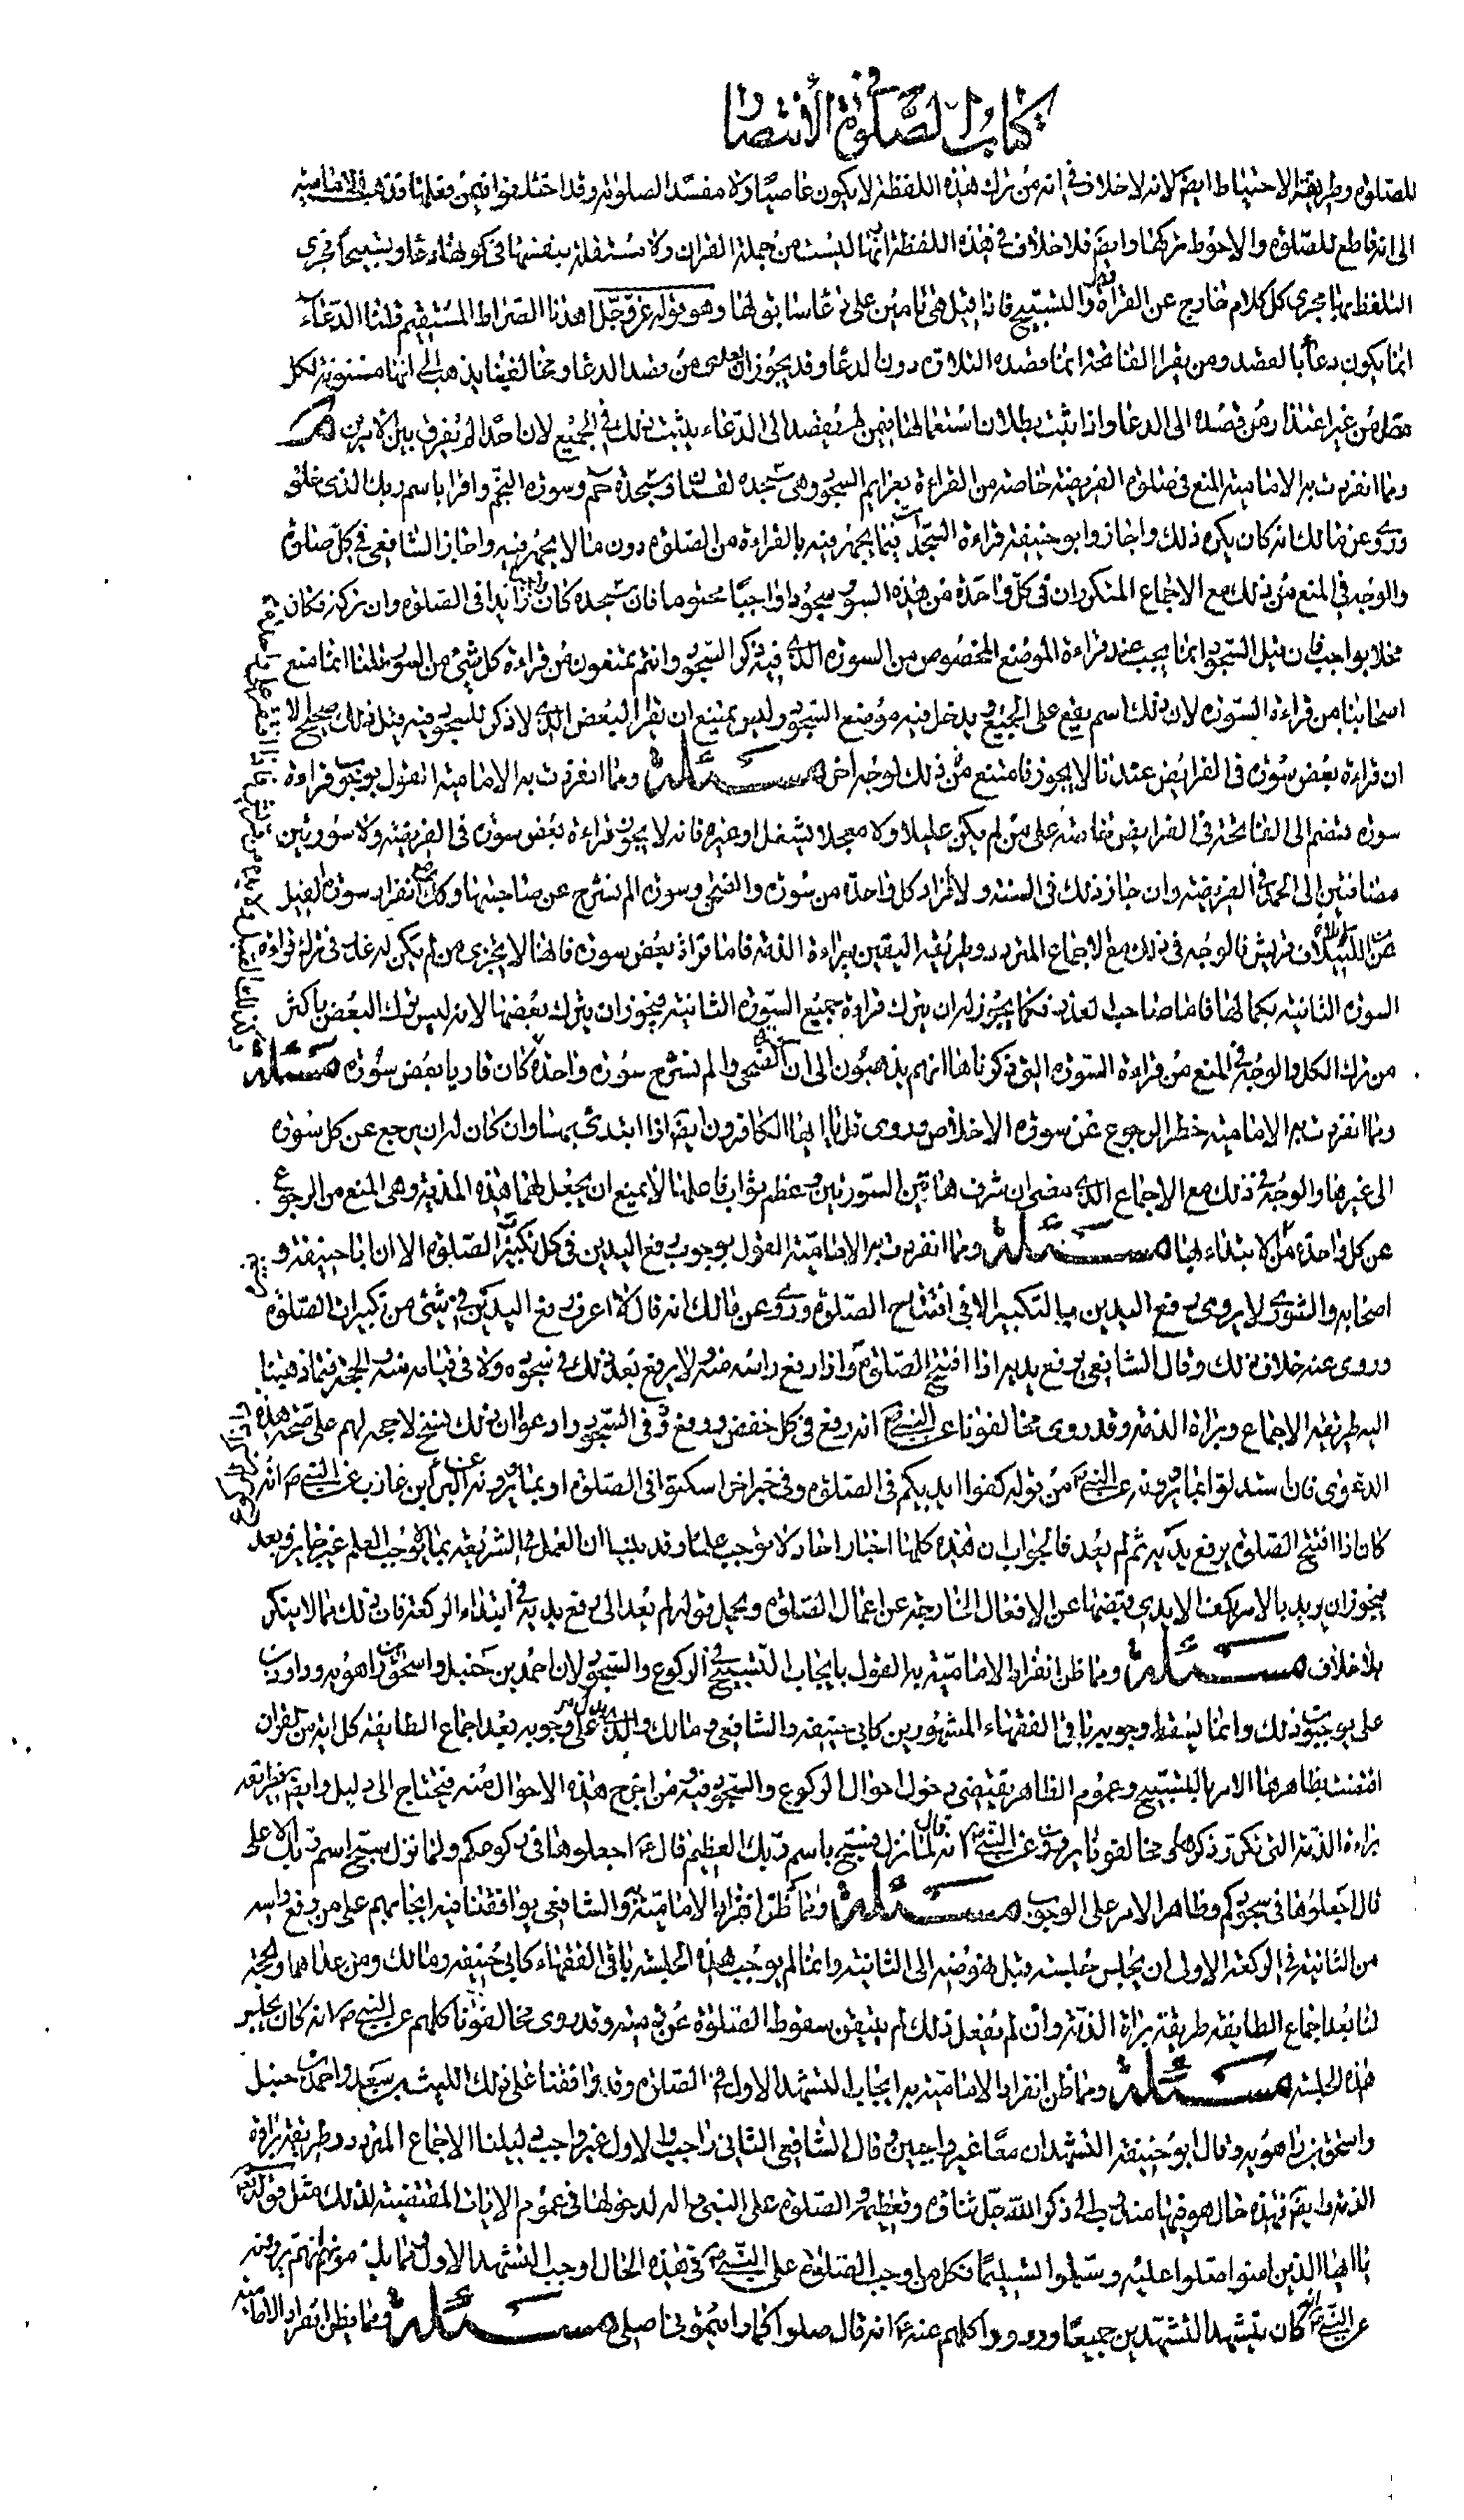 كتاب الصلوة في الانتصار
للصلوة وطريقة الاحتياط ايضا لانه لا خلاف في انه من ترك هذه اللفظة لا يكون عاصيا ولا مفسدا لصلوته وقد اختلفوا فيمن فعلها فذهب الامامية
الى انه قاطع للصلوة والاحوط تركها وايضا فلا خلاف في هذه اللفظة انها ليست من جملة القران ولا مستقلة بنفسها في كونها دعا وتسبيحا فجرى
التلفظ بها مجرى كل كلام خارج عن القراة والتسبيح فاذا قيل هي تامين على دعا سابق لها وهو قوله عز وجل اهدنا الصراط المستقيم قلنا الدعاء
انما يكون دعا بالقصد ومن يقرا الفاتحة انما قصده التلاوة دون الدعا وقد يجوز ان يعرى من قصد الدعا ومخالفينا يذهب الى انها مسنونة لكل
مصل من غير اعتبار من قصده الى الدعا واذا ثبت بطلان استعمالها فيمن لم يقصد الى الدعاء يثبت ذلك في الجميع لان احدا لم يفرق بين الامرين مسئلة
ومما انفردت به الامامية المنع في صلوة الفريضة خاصة من القراءة بعزايم السجود وهي سجدة لقمان وسجدة حم وسورة النجم واقرا باسم ربك الذي خلق
وروى عن مالك انه كان يكره ذلك واجاز ابو حنيفة قراءة السجدات فيما يجهر فيه بالقراءة من الصلوة دون ما لا يجهر فيه واجاز الشافعي في كل صلوة
والوجه في المنع من ذلك مع الاجماع المتكرر ان في كل واحدة من هذه السور سجودا واجبا محتوما فان سجده كان زايدا في الصلوة وان تركه كان
مخلا بواجب فان قيل السجود انما يجب عند قراءة الموضع المخصوص من السورة الذي فيه ذكر السجود وانتم تمنعون من قراءة كل شي من السورة قلنا انما منع
اصحابنا من قراءة السورة لان ذلك اسم يقع على الجميع ويدخل فيه موضع السجود وليس يمتنع ان يقرا البعض الذي لا ذكر للسجود فيه قيل ذلك صحيح الا
ان قراءة بعض سورة في الفرايض عندنا لا يجوز فامتنع من ذلك لوجه اخر مسئلة ومما انفردت به الامامية القول بوجوب قراءة
سورة تنضم الى الفاتحة في الفرايض خاصة على من لم يكن عليلا ولا معجلا بشغل او غيره فانه لا يجوز قراءة بعض سورة في الفريضة ولا سورتين
مضافتين الى الحمد في الفريضة وان جاز ذلك في السنة ولا افراد كل واحدة من سورة والضحى وسورة الم نشرح عن صاحبتها وكذلك افراد سورة الفيل
عن لايلاف قريش فالوجه في ذلك مع الاجماع المتردد وطريقة اليقين ببراءة الذمة فاما قراءة بعض سورة فانها لا يجزي من لم يكن له علة في ترك قراءة
السورة الثانية بكمالها فاما صاحب العذر فكما يجوز له ان يترك قراءة جميع السورة الثانية فيجوز ان يترك بعضها لانه ليس ترك البعض باكثر
من ترك الكل والوجه في المنع من قراءة السورة التي ذكرناها انهم يذهبون الى ان الضحى والم نشرح سورة واحدة كان قاريا بعض سورة مسئلة
ومما انفردت به الامامية حظر الرجوع عن سورة الاخلاص وروى قل يا ايها الكافرون ايضا اذا ابتدئ بهما وان كان له ان يرجع عن كل سورة
الى غيرها والوجه في ذلك مع الاجماع الذي مضى ان شرف هاتين السورتين وعظم ثواب فاعلهما لا يمتنع ان يجعل لهما هذه المزية وهى المنع من الرجوع
عن كل واحدة من الابتداء بها مسئلة ومما انفردت به الامامية القول بوجوب رفع اليدين في كل تكبيرات الصلوة الا ان ابا حنيفة و
اصحابه والثوري لا يروى رفع اليدين بالتكبير الا في افتتاح الصلوة وروى عن مالك انه قال لا اعرف رفع اليدين في شئ من تكبيرات الصلوة
وروى عنه خلاف ذلك وقال الشافعي يرفع يديه اذا افتتح الصلوة واذا رفع راسه منه لا يرفع بعد ذلك في سجوده ولا في قيامه منه والحجة فيما ذهبنا
اليه طريقة الاجماع وبراءة الذمة وقد روى مخالفونا عن النبي ص انه رفع في كل خفض ورفع وفي السجود وادعوا ان ذلك نسخ لا حجة لهم على صحة هذه
الدعوى فان استدلوا بما يروونه عن النبي ص من قوله كفوا ايديكم في الصلوة وفي خبر اخر اسكنوا في الصلوة او بما يروونه عن البراء بن عازب عن النبي ص انه
كان اذا افتتح الصلوة يرفع يديه ثم لم يعد فالجواب ان هذه كلها اخبار احاد لا توجب علما وقد بينا ان العمل في الشريعة بما لا يوجب العلم غير جايز وبعد
فيجوز ان يريد بالامر بكف الايدي قبضها عن الافعال الخارجة عن اعمال الصلوة ويحمل قوله لم يعد الى رفع يديه في ابتداء الركعة فان ذلك مما لا ينكر
بلا خلاف مسئلة ومما ظن انفراد الامامية به القول بايجاب التسبيح في الركوع والسجود لان احمد بن حنبل واسحق بن راهويه وداود
على يوجبون ذلك وانما يسقط وجوبه باقي الفقهاء المشهورين كابي حنيفة والشافعي ومالك والذي يدل على وجوبه بعد اجماع الطايفة كل اية من القران
اقتضت بظاهرها الامر بالتسبيح وعموم الظاهر يقتضى دخول احوال الركوع والسجود فيه ومن اخرج هذه الاحوال منه فيحتاج الى دليل وايضا فطريقة
براءة الذمة التي تكرر ذكرها وفي مخالفونا يروون عن النبي ص انه قال لما نزل فسبح باسم ربك العظيم قال ع اجعلوها في ركوعكم ولما نزل سبح اسم ربك الاعلى
قال اجعلوها في سجودكم وظاهر الامر على الوجوب مسئلة ومما ظن انفراد الامامية به والشافعي يوافقنا فيه ايجابهم على من رفع راسه
من الثانية في الركعة الاولى ان يجلس جلسة قبل نهوضه الى الثانية وانما لم يوجب هذه الجلسة باقي الفقهاء كابي حنيفة ومالك ومن عداهما والحجة
لنا بعد اجماع الطايفة طريقة براءة الذمة وان لم يفعل ذلك لم يتيقن سقوط الصلوة عن ذمته وقد روى مخالفونا كلهم عن النبي ص انه كان يجلس
هذه الجلسة مسئلة ومما ظن انفراد الامامية به ايجاب التشهد الاول في الصلوة وقد وافقنا على ذلك الليث بن سعد واحمد بن حنبل
واسحق بن راهويه وقال ابو حنيفة التشهدان معا غير واجبين وقال الشافعي الثاني واجب والاول غير واجب دليلنا الاجماع المتردد وطريقة براءة
الذمة وايضا فهذه حال هو فيها مندوب الى ذكر الله جل ثناؤه وتعظيمه والصلوة على النبي واله لدخولها في عموم الايات المقتضية لذلك مثل قوله
يا ايها الذين امنوا صلوا عليه وسلموا تسليما فكل من اوجب الصلوة على النبي ص في هذه الحال اوجب التشهد الاول ومما يلزمونهم انهم يروونه
عن النبي ص كان يتشهد التشهدين جميعا ورووا كلهم عنه ع انه قال صلوا كما رايتموني اصلي مسئلة ومما يظن انفراد الامامية